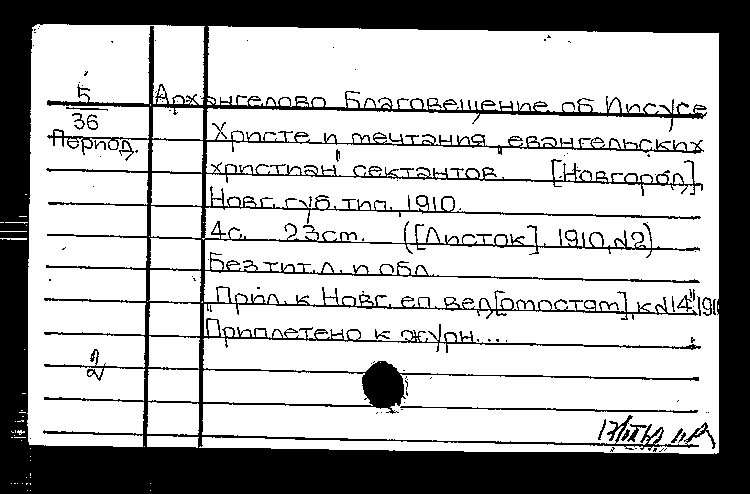 5
36
Период.
Архангелово Благовещение об Иисусе
Христе и мечтания „евангельских
христиан" сектантов. [Новгород],
Новг. губ. тип., 1910.
4с. 23ст. ([Листок]. 1910, №2).
Без тит. л. и обл.
„Прил. к Новг. еп. вед[омостям], к №14", 191
Приплетено к журн. ...
2